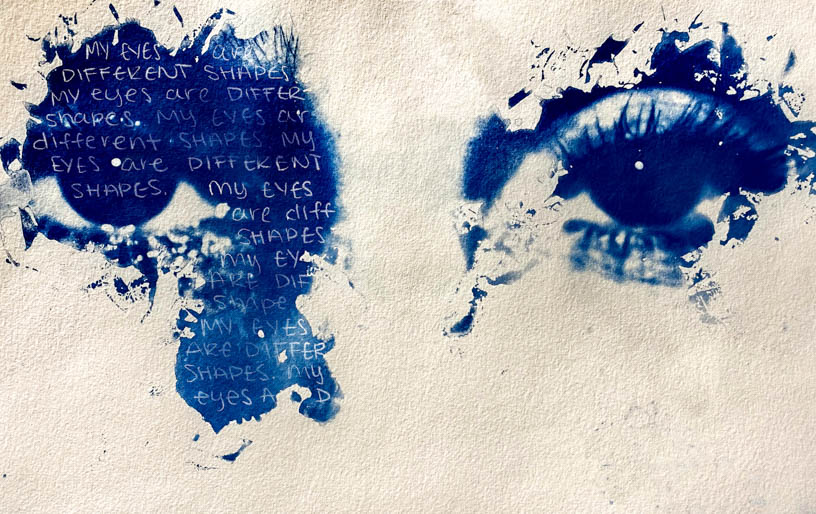 MY EYES are
DIFFERENT SHAPES
MY eyes are DIFFER
shapes. MY EYES ar
different SHAPES MY
EYES are DIFFERENT
SHAPES. MY EYES
are diff
SHAPES
My EY
ARE DIF
Shape
MY EYES
ARE DIFFER
SHAPES My
eyes A D